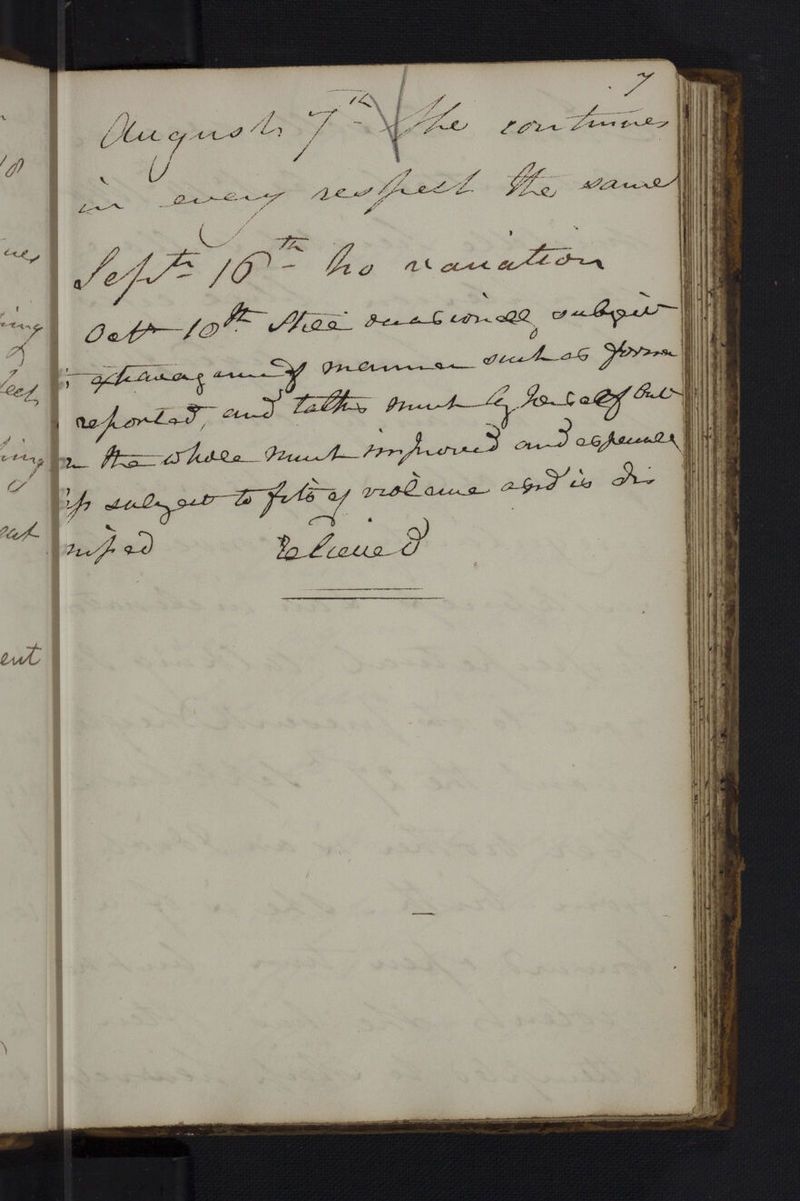 7
August 7th She continues
in every respect the same
Septr 16th no variation
Octr 10th Still occasionally subject
extravagance of manner such as former
reported, and talks much by herself but
the whole much improved and especially
subject to fits of violence and is dis
missed Relieved
ent